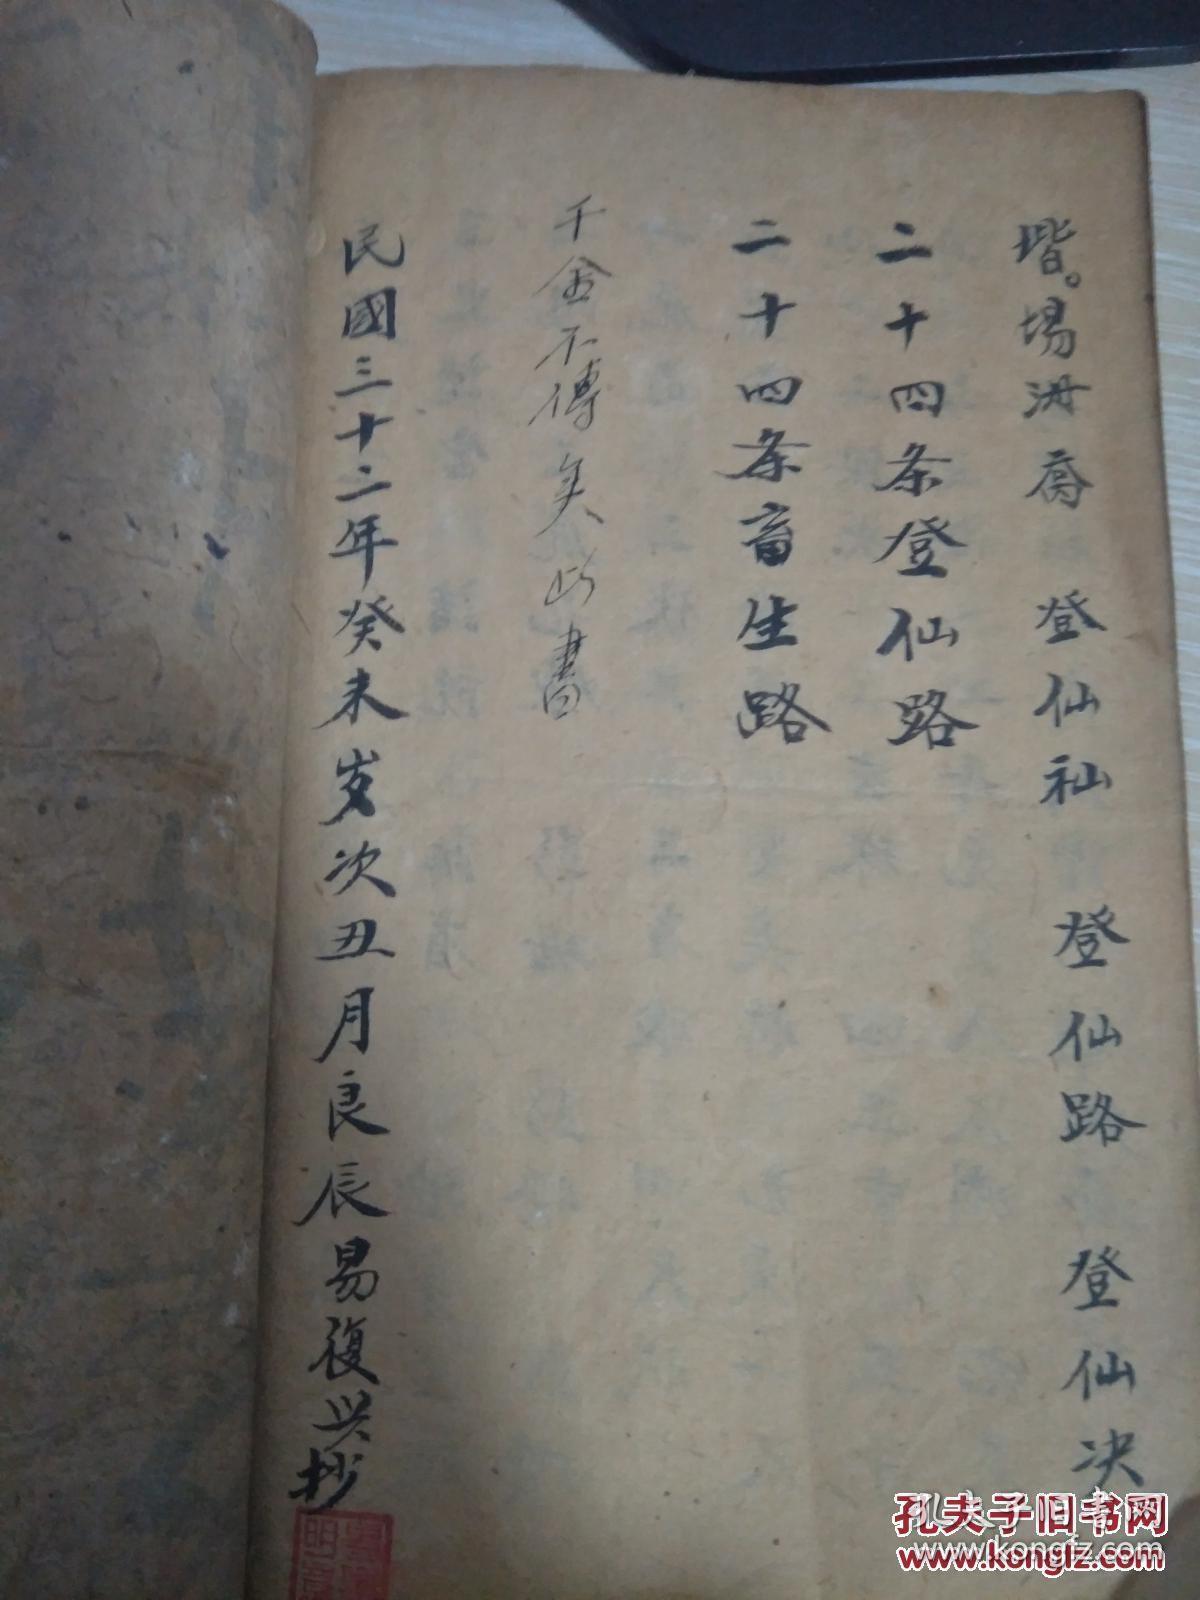 登仙社 登仙路 登仙决
二十四条登仙路
二十四条畜生路
千金不傳 此書
民國三十二年癸未岁次丑月良辰易復兴抄
孔夫子旧书网
www.kongfz.com